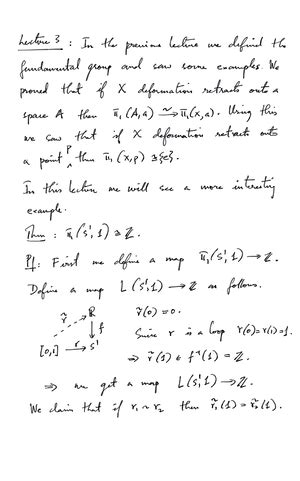 Lecture 3 : In the previous lecture we defined the
fundamental group and saw some examples. We
proved that if X deformation retracts onto a
space A then π₁(A,a) ⥲ π₁(X,a). Using this
we saw that if X deformation retracts onto
a point p then π₁(X,p) ≅ {e}.
In this lecture we will see a more interesting
example.
Thm : π₁(S¹,1) ≅ ℤ.
Pf: First we define a map π₁(S¹,1) → ℤ.
Define a map L(S¹,1) → ℤ as follows.
ℝ γ̃(0) = 0.
γ̃ ↓ f
Since γ is a loop γ(0)=γ(1)=1
[0,1] →γ S¹
⇒ γ̃(1) ∈ f⁻¹(1) = ℤ.
⇒ we get a map L(S¹,1) → ℤ.
We claim that if γ₁ ~ γ₂ then γ̃₁(1) = γ̃₂(1).